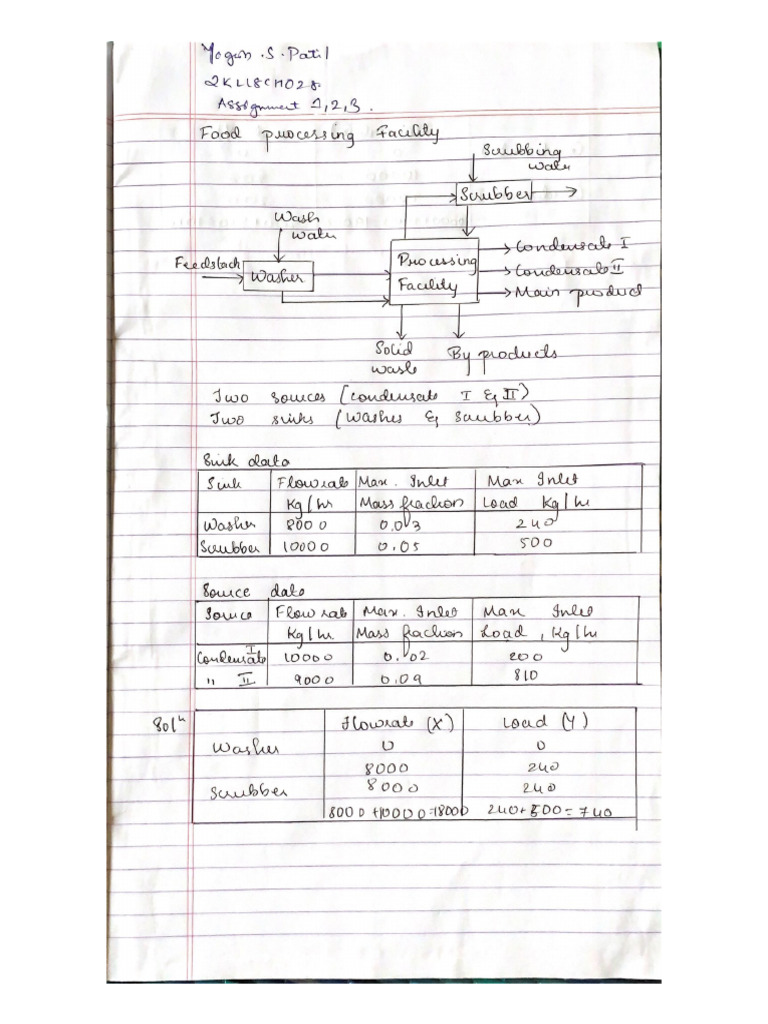 Yogesh .S. Patil
2KL18CH028.
Assignment 1,2,3.
Food processing Facility
Scrubbing
water
Scrubber
Wash
water
Feedstock
Washer
Processing
Facility
Condensate I
Condensate II
Main product
Solid
waste
By products
Two sources (Condensate I & II)
Two sinks (Washer & Scrubber)
Sink data
Sink Flowrate Max. Inlet Max Inlet
Kg/hr Mass fraction Load Kg/hr
Washer 8000 0.03 240
Scrubber 10000 0.05 500
Source data
Source Flowrate Max. Inlet Max Inlet
Kg/hr Mass fraction Load, Kg/hr
Condensate I 10000 0.02 200
" II 9000 0.09 810
Solⁿ
Flowrate (X) Load (Y)
Washer 0 0
8000 240
Scrubber 8000 240
8000+10000=18000 240+500=740